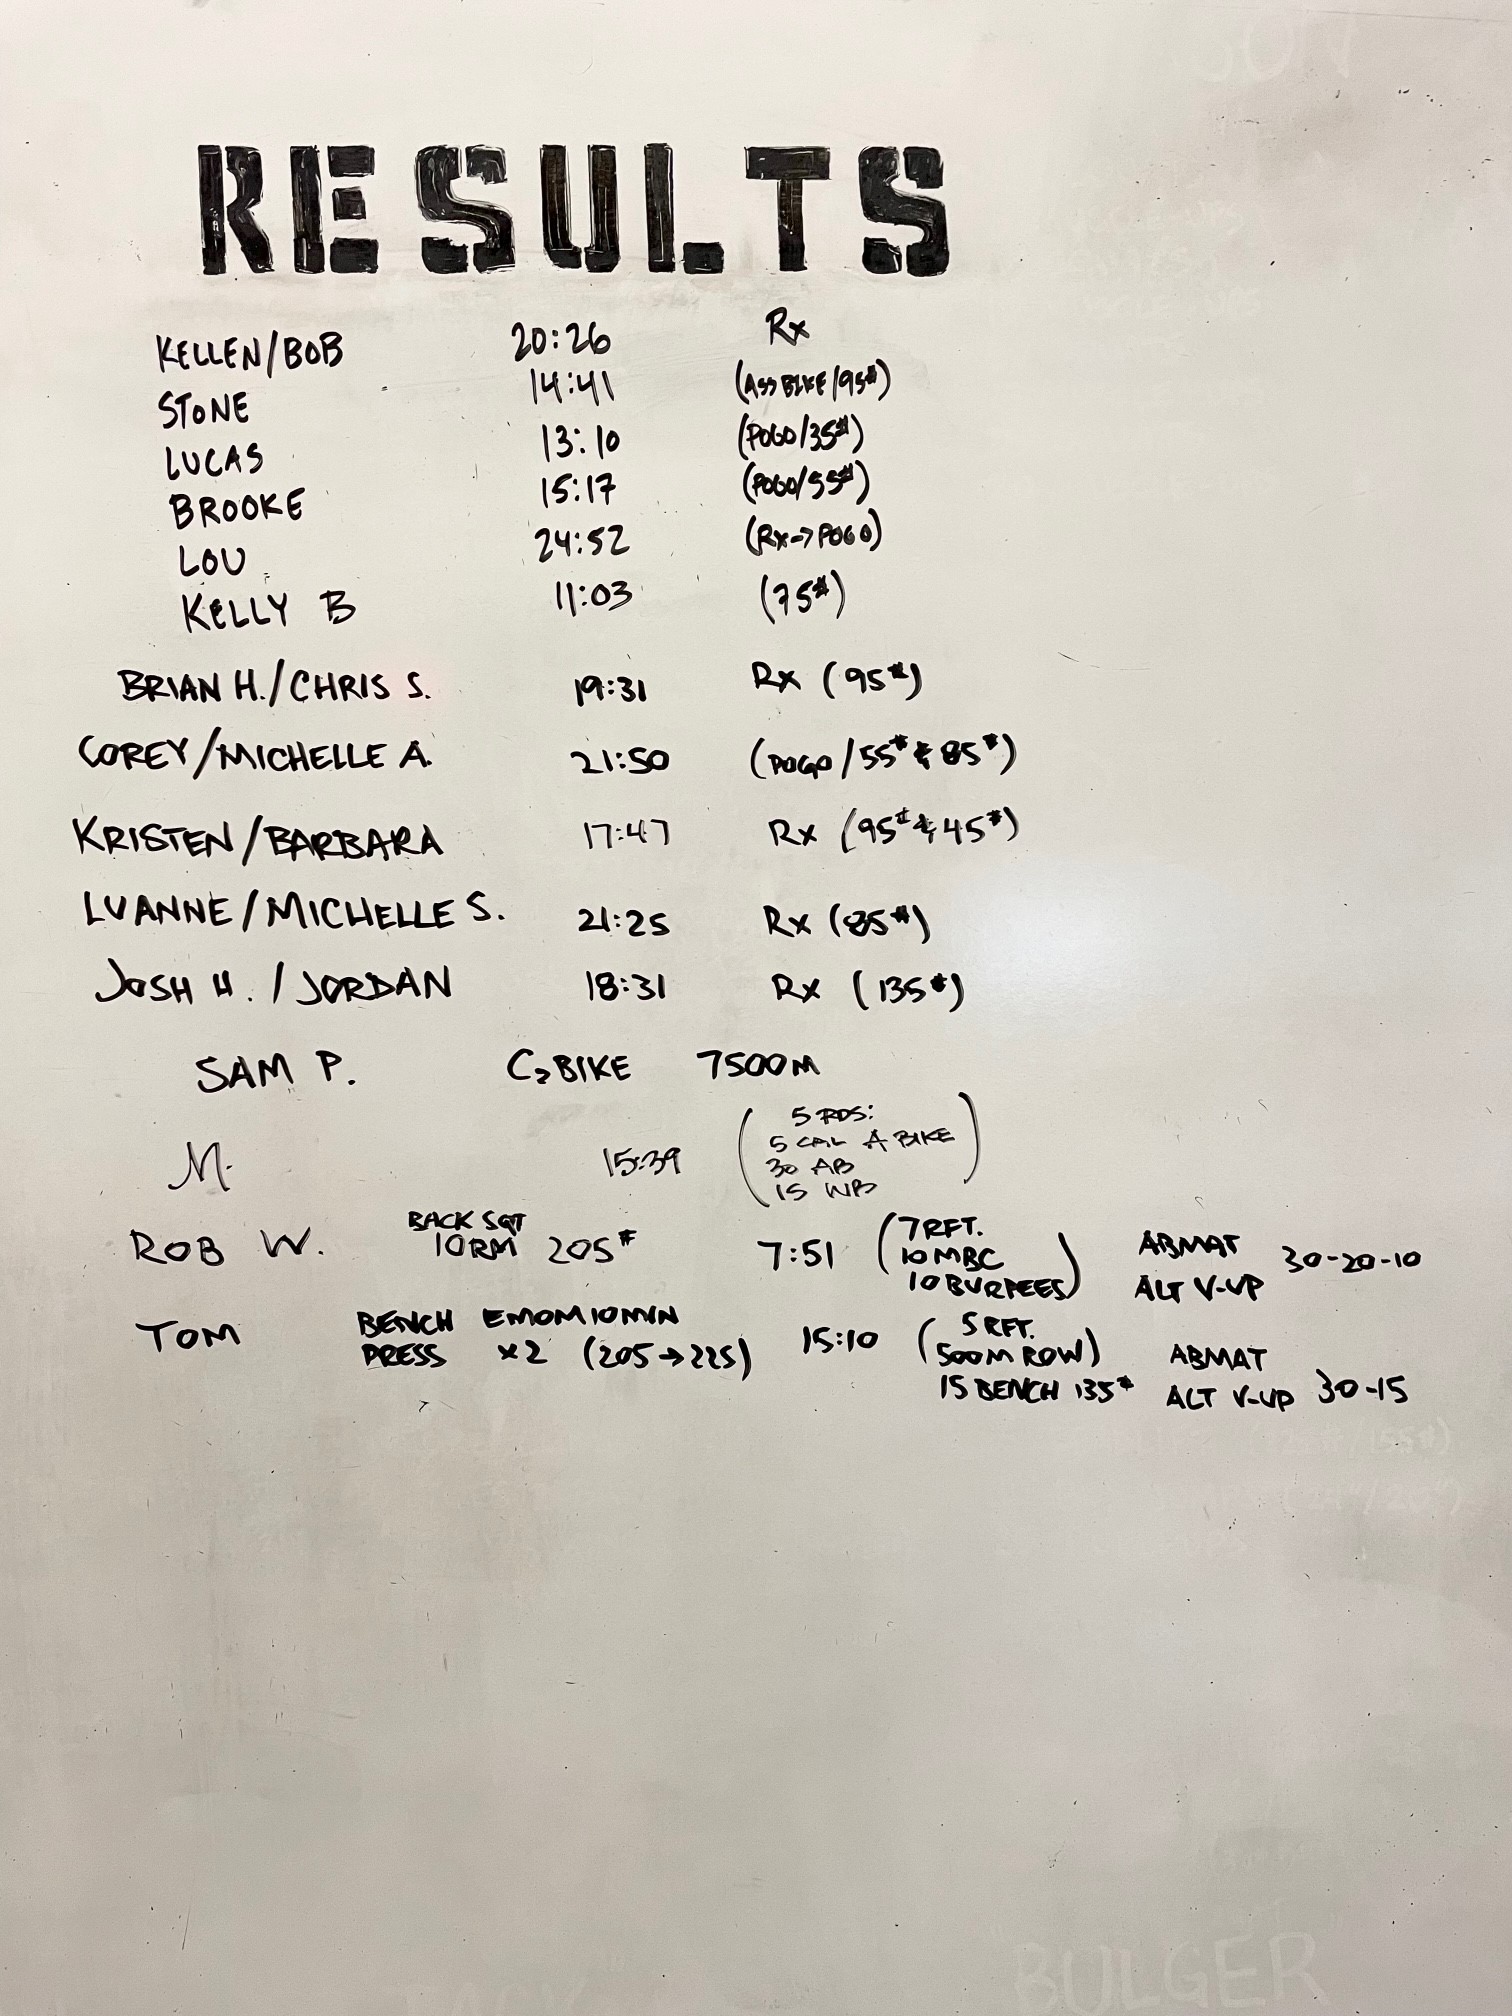 RESULTS
KELLEN/BOB 20:26 Rx
STONE 14:41 (ASS BIKE/95#)
LUCAS 13:10 (POGO/35#)
BROOKE 15:17 (POGO/55#)
LOU 24:52 (Rx->POGO)
KELLY B 11:03 (75#)
BRIAN H./CHRIS S. 19:31 Rx (95#)
COREY/MICHELLE A. 21:50 (POGO/55# & 85#)
KRISTEN/BARBARA 17:47 Rx (95# & 45#)
LUANNE/MICHELLE S. 21:25 Rx (85#)
JOSH H./JORDAN 18:31 Rx (135#)
SAM P. C2 BIKE 7500M
M. 15:39 (5 RDS:
5 CAL A BIKE
30 AB
15 WB)
ROB W. BACK SQT
10RM 205# 7:51 (7 RFT.
10 MBC
10 BURPEES) ABMAT
ALT V-UP 30-20-10
TOM BENCH PRESS EMOM 10 MIN
x2 (205→225) 15:10 (5 RFT.
500M ROW)
15 BENCH 135# ABMAT
ALT V-UP 30-15
"BULGER"